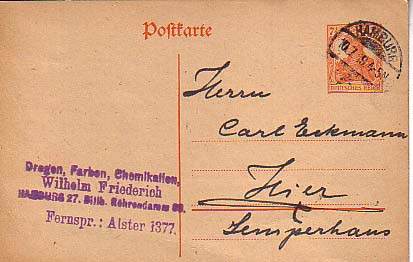 Postkarte
7½
HAMBURG
10.7.
DEUTSCHES REICH
Herrn
Carl Eckmann
Hier
Semperhaus
Drogen, Farben, Chemikalien,
Wilhelm Friederich
HAMBURG 27. Billh. Röhrendamm
Fernspr.: Alster 1377.